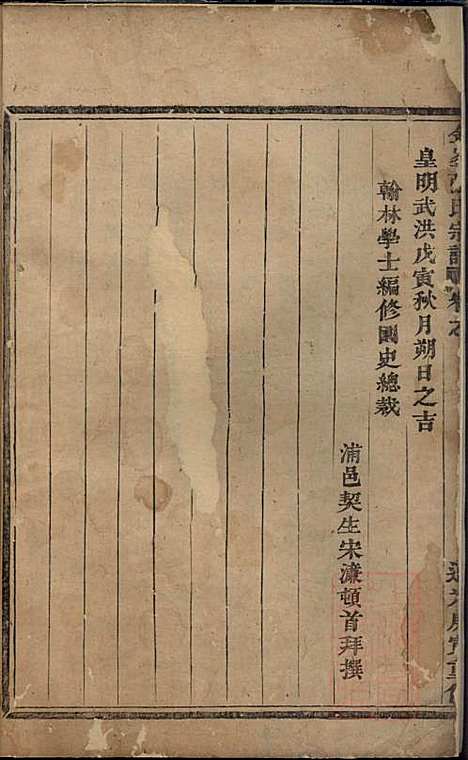 皇明武洪戊寅秋月朔日之吉
翰林學士編修國史總裁
浦邑契生宋濂頓首拜撰